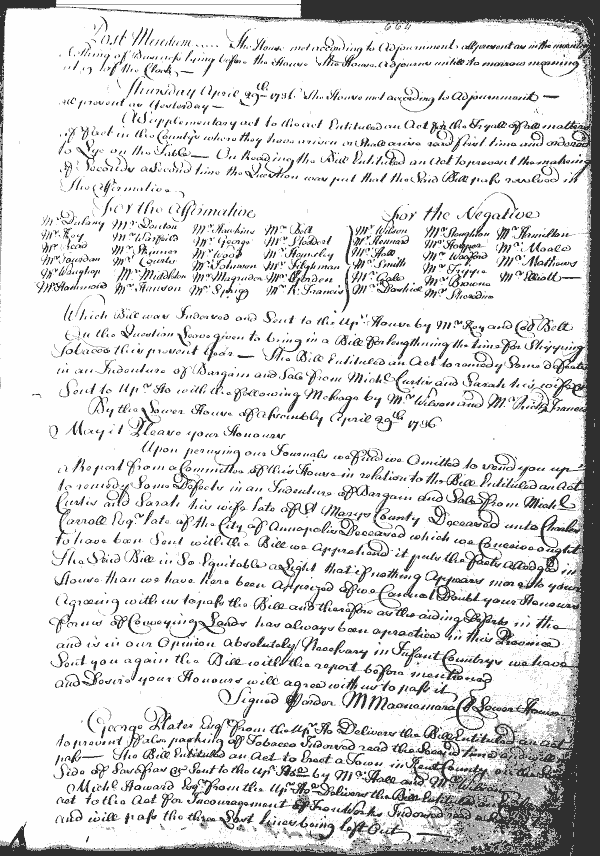 664
Post Meridiem ..... The House met according to Adjournment all present as in the morning
nothing of Business lying before the House the House Adjourns untill to morrow morning
at 9 of the Clock —
Thursday April 29th 1736 The House met according to Adjournment —
all present as Yesterday —
A Supplementary act to the act Entituled an Act for the Tryall of all matters
of Fact in the Countys where they have arisen or shall arise read first time and ordered
to Lye on the Table — On Reading the Bill Entituled an Act to prevent the making
of Seconds a second time the Question was put that the Said Bill pass resolved in
the Affirmative
For the Affirmative For the Negative
Mr Dulany Mr Denton Mr Hawkins Mr Bell Mr Wilson Mr Stoughton Mr Hamilton
Mr Key Mr Warfield Mr George Mr Stoddert Mr Hennard Mr Hooper Mr Maule
Mr Read Mr Skinner Mr Wood Mr Hemsley Mr Hall Mr Mathews
Mr Courts Mr Johnson Mr Tilghman Mr Smith Mr Trippe Mr Elliott
Mr Waughop Mr Middleton Mr Magruder Mr Gordon Mr Gale Mr Browne
Mr Hammond Mr Hanson Mr Sprigg Mr R. Francis Mr Dashiel Mr Sheredine
Which Bill was Indorsed and Sent to the Upr House by Mr Key and Coll Bell
On the Question Leave given to bring in a Bill for lengthning the time for Shipping
Tobaccos this present Year — The Bill Entituled an Act to remedy Some defects
in an Indenture of Bargain and Sale from Michl Curtis and Sarah his wife &c
Sent to Upr Ho with the following Message by Mr Wilson and Mr Francis
By the Lower House of Assembly April 29th 1736
May it Please your Honours
Upon perusing our Journals we find we Omitted to send you up
a Report from a Committee of this House in relation to the Bill Entituled an Act
to remedy Some Defects in an Indenture of Bargain and Sale from Michl
Curtis and Sarah his wife late of St Marys County Deceased unto Charles
Carroll Esqr late of the City of Annapolis Deceased which we Conceive ought
to have been Sent with the Bill we apprehend it puts the facts alledged in
the Said Bill in So Equitable a Light that if nothing Appears more to your
House than we have here been Apprized of we Cannot Doubt your Honours
Agreeing with us to pass the Bill and therefore as the aiding Defects in the
forms of Conveying Lands has always been a practice in this Province
and is in our Opinion absolutely Necessary in Infant Countrys we have
Sent you again the Bill with the report before mentioned
and Desire your Honours will agree with us to pass it
Signed Order M Macnemara Cl Lower House
George Plater Esqr from the Upr Ho Delivers the Bill Entituled an act
to prevent false packing of Tobacco Indorsed read the Second time and will
pass — The Bill Entituled an Act to Erect a Town in Kent County on the
Side of Sassafras &c Sent to the Upr House by Mr Hall and Mr Wilson
Michl Howard Esqr from the Upr Ho Delivers the Bill Entituled
act to the Act for Incouragement of Iron Works Indorsed read
and will pass the three Last lines being left Out —